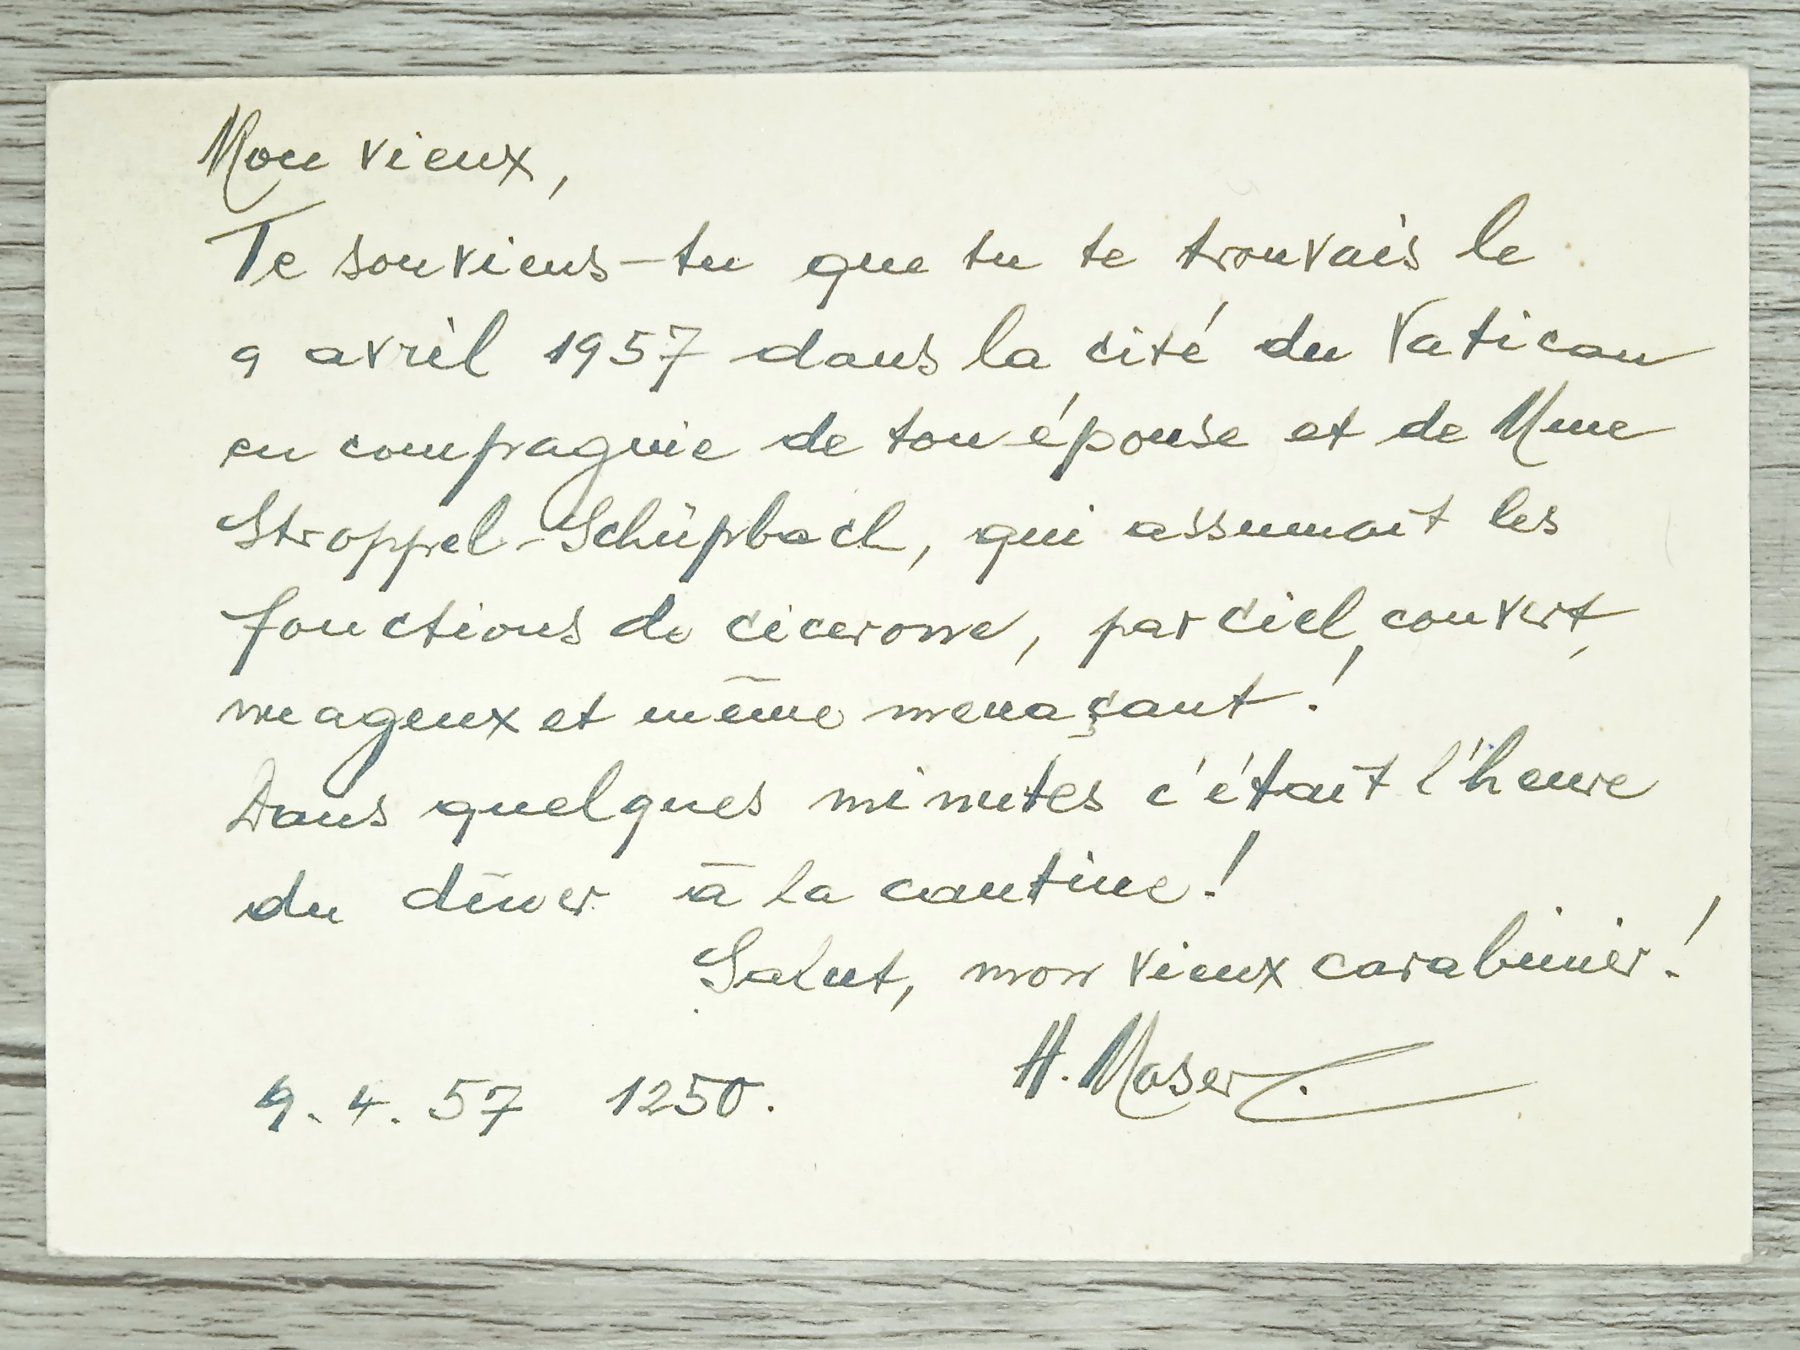 Mon vieux,
Te souviens-tu que tu te trouvais le
9 avril 1957 dans la cité du Vatican
en compagnie de ton épouse et de Mme
Stroppel-Schüpbach, qui assumait les
fonctions de cicerone, par ciel couvert,
nuageux et même menaçant!
Dans quelques minutes c'était l'heure
du dîner à la cantine!
Salut, mon vieux carabinier!
H. Moser.
9.4.57 1250.